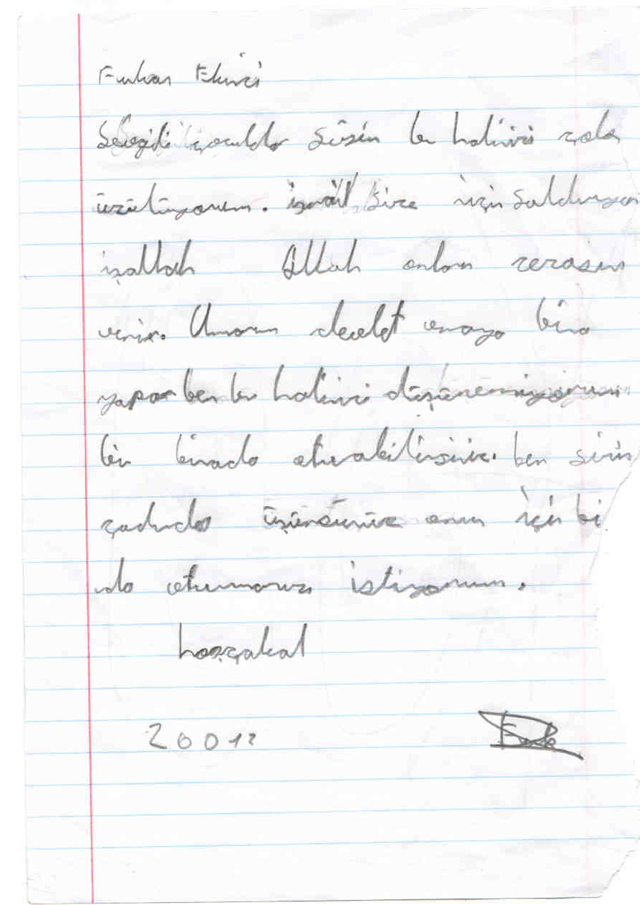 Furkan Ekinci
Sevgili çocuklar sizin bu halinizi çok
üzülüyorum. İsrail size için saldırıyor
işallah Allah onların cezasını
verir. Umarım devlet oraya bina
yapar ben bu halinizi düşünemiyorum
bir binada oturabilirsiniz. ben sizin
çadırda üşürsünüz onun için bi
nada oturmanızı istiyorum.
hoşçakal
20012